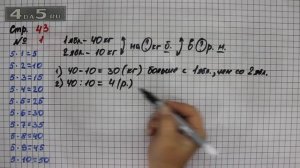 4DA5.RU
Стр. 43
№ 1
5·1=5
5·2=10
5·3=15
5·4=20
5·5=25
5·6=30
5·7=35
5·8=40
5·9=45
5·10=50
1 ябл. - 40 кг
2 ябл. - 10 кг
на ? кг б.
в ? р. м.
1) 40-10=30 (кг) больше с 1 ябл., чем со 2 ябл.
2) 40:10=4 (р.)